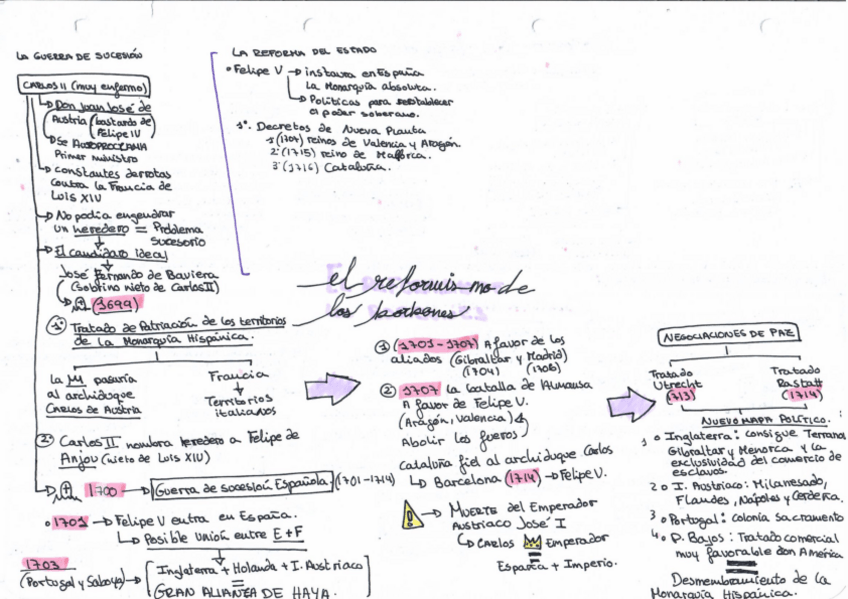 LA GUERRA DE SUCESIÓN
CARLOS II (muy enfermo)
Don Juan José de
Austria (bastardo de
Felipe IV
Se AUTOPROCLAMA
Primer ministro
constantes derrotas
contra la Francia de
Luis XIV
No podía engendrar
un heredero = Problema
sucesorio
El candidato ideal
José Fernando de Baviera
(sobrino nieto de Carlos II)
(1699)
1º Tratado de Patriación de los territorios
de la Monarquía Hispánica.
la M pasaría
al archiduque
CARLOS DE AUSTRIA
Francia
Territorios
italianos
2º Carlos II nombra heredero a Felipe de
Anjou (nieto de Luis XIV)
1700 → Guerra de sucesión Española. (1701-1714)
1701 → Felipe V entra en España.
Posible unión entre E+F
1703
(Portugal y Saboya) →
Inglaterra + Holanda + I. Austriaco
=
GRAN ALIANZA DE HAYA.
LA REFORMA DEL ESTADO
Felipe V → instaura en España
la Monarquía absoluta.
Políticas para restablecer
el poder soberano.
1º. Decretos de Nueva Planta
1º (1707) reinos de Valencia y Aragón.
2º (1715) reino de Mallorca.
3º (1716) Cataluña.
el reformismo de
los borbones
1 (1701-1707) A favor de los
aliados (Gibraltar y Madrid)
(1704) (1706)
2 1707 la batalla de Almansa
A favor de Felipe V.
(Aragón, Valencia)
Abolir los fueros
Cataluña fiel al archiduque Carlos
Barcelona (1714) → Felipe V.
! → MUERTE del Emperador
Austriaco José I
CARLOS Emperador
=
España + Imperio.
NEGOCIACIONES DE PAZ
Tratado
Utrecht
(1713)
Tratado
Rastatt
(1714)
NUEVO MAPA POLÍTICO.
1 Inglaterra: consigue Terranova
Gibraltar y Menorca y la
exclusividad del comercio de
esclavos.
2 I. Austriaco: Milanesado,
Flandes, Nápoles y Cerdeña.
3 Portugal: colonia sacramento
4 P. Bajos: Tratado comercial
muy favorable con América
=
Desmembramiento de la
Monarquía Hispánica.